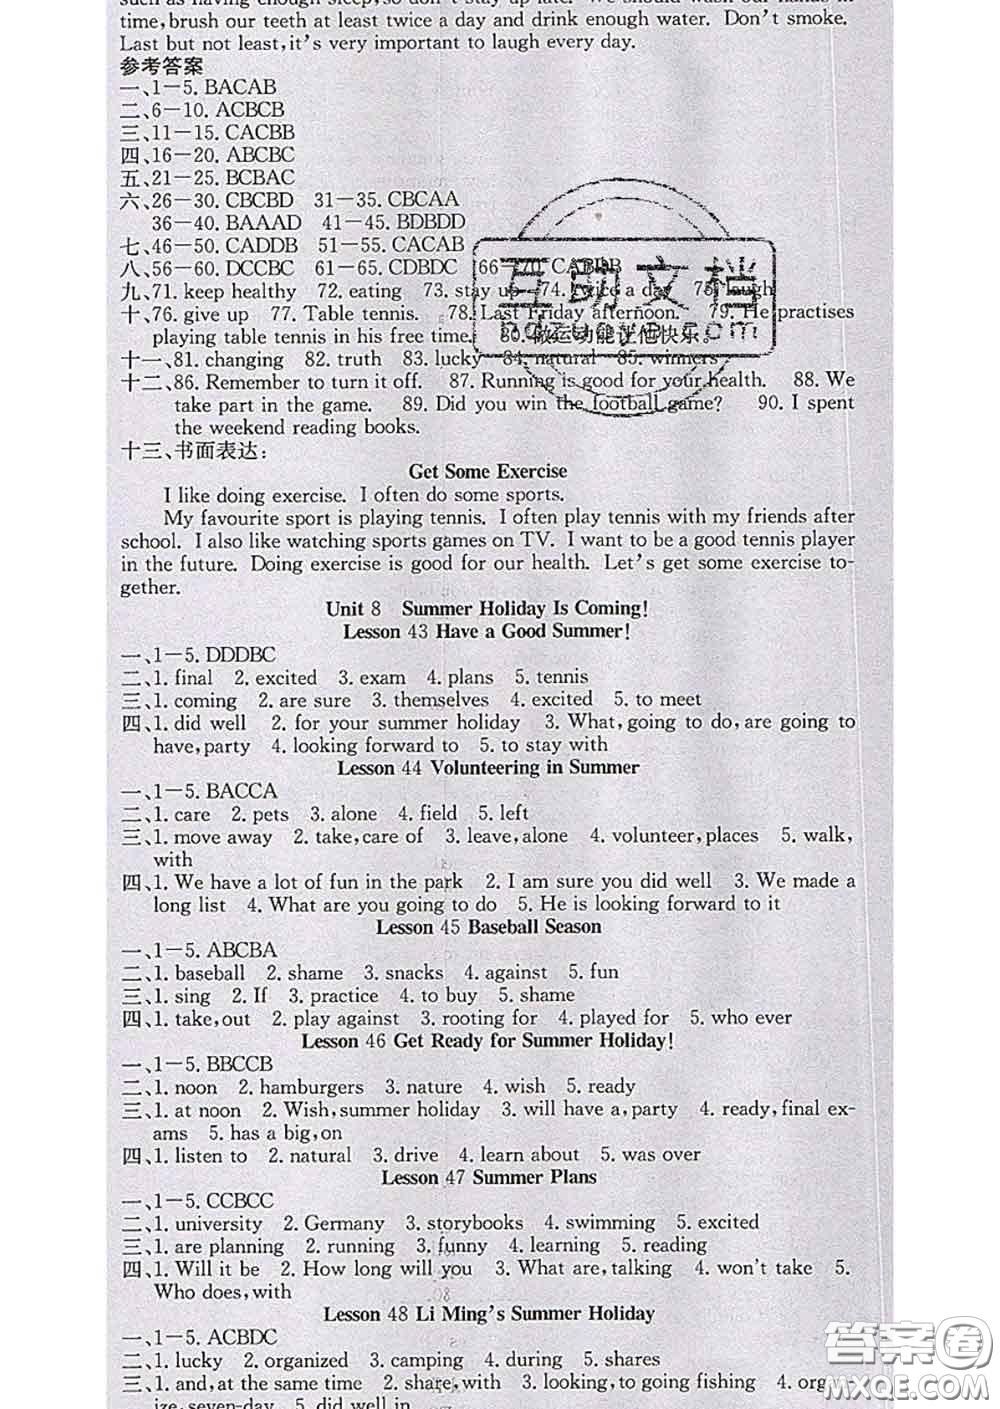 such as having enough sleep,so don't stay up late. We should wash our hands in
time,brush our teeth at least twice a day and drink enough water. Don't smoke.
Last but not least,it's very important to laugh every day.
参考答案
一、1－5. BACAB
二、6－10. ACBCB
三、11－15. CACBB
四、16－20. ABCBC
五、21－25. BCBAC
六、26－30. CBCBD 31－35. CBCAA
36－40. BAAAD 41－45. BDBDD
七、46－50. CADDB 51－55. CACAB
八、56－60. DCCBC 61－65. CDBDC 66－70. CABBB
九、71. keep healthy 72. eating 73. stay up 74. twice a day 75. laugh
十、76. give up 77. Table tennis. 78. Last Friday afternoon. 79. He practises
playing table tennis in his free time. 80. 做运动能让他快乐。
十一、81. changing 82. truth 83. lucky 84. natural 85. winners
十二、86. Remember to turn it off. 87. Running is good for your health. 88. We
take part in the game. 89. Did you win the football game? 90. I spent
the weekend reading books.
十三、书面表达：
Get Some Exercise
I like doing exercise. I often do some sports.
My favourite sport is playing tennis. I often play tennis with my friends after
school. I also like watching sports games on TV. I want to be a good tennis player
in the future. Doing exercise is good for our health. Let's get some exercise to-
gether.
Unit 8 Summer Holiday Is Coming!
Lesson 43 Have a Good Summer!
一、1－5. DDDBC
二、1. final 2. excited 3. exam 4. plans 5. tennis
三、1. coming 2. are sure 3. themselves 4. excited 5. to meet
四、1. did well 2. for your summer holiday 3. What,going to do,are going to
have,party 4. looking forward to 5. to stay with
Lesson 44 Volunteering in Summer
一、1－5. BACCA
二、1. care 2. pets 3. alone 4. field 5. left
三、1. move away 2. take,care of 3. leave,alone 4. volunteer,places 5. walk,
with
四、1. We have a lot of fun in the park 2. I am sure you did well 3. We made a
long list 4. What are you going to do 5. He is looking forward to it
Lesson 45 Baseball Season
一、1－5. ABCBA
二、1. baseball 2. shame 3. snacks 4. against 5. fun
三、1. sing 2. If 3. practice 4. to buy 5. shame
四、1. take,out 2. play against 3. rooting for 4. played for 5. who ever
Lesson 46 Get Ready for Summer Holiday!
一、1－5. BBCCB
二、1. noon 2. hamburgers 3. nature 4. wish 5. ready
三、1. at noon 2. Wish,summer holiday 3. will have a,party 4. ready,final ex-
ams 5. has a big,on
四、1. listen to 2. natural 3. drive 4. learn about 5. was over
Lesson 47 Summer Plans
一、1－5. CCBCC
二、1. university 2. Germany 3. storybooks 4. swimming 5. excited
三、1. are planning 2. running 3. funny 4. learning 5. reading
四、1. Will it be 2. How long will you 3. What are,talking 4. won't take 5.
Who does,with
Lesson 48 Li Ming's Summer Holiday
一、1－5. ACBDC
二、1. lucky 2. organized 3. camping 4. during 5. shares
三、1. and,at the same time 2. share,with 3. looking,to going fishing 4. organ-
ize,seven-day 5. did well in
互助文档
hdzuoye.com
答案圈
MXQE.COM